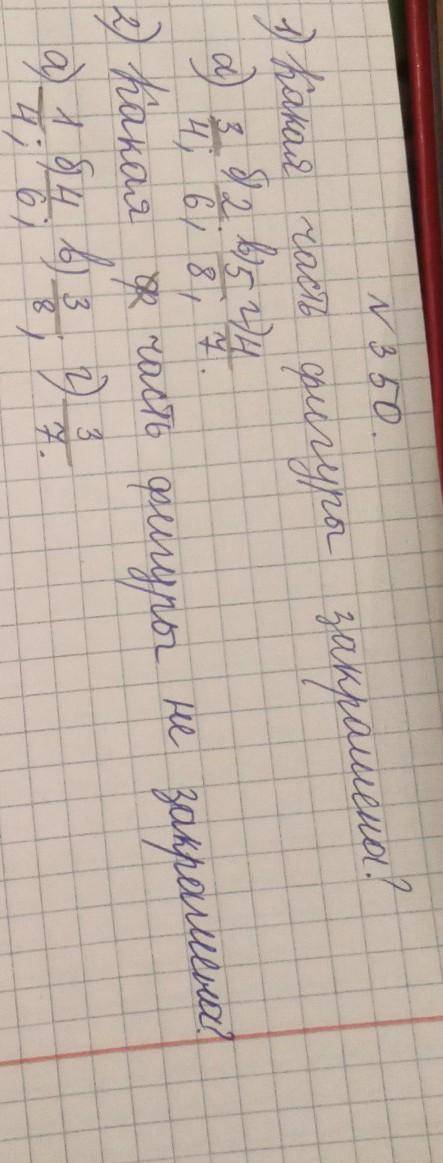 №350.
1) Какая часть фигуры закрашена?
а) 3/4; б) 2/6; в) 5/8, г) 4/7.
2) Какая часть фигуры не закрашена?
а) 1/4; б) 4/6; в) 3/8; г) 3/7.